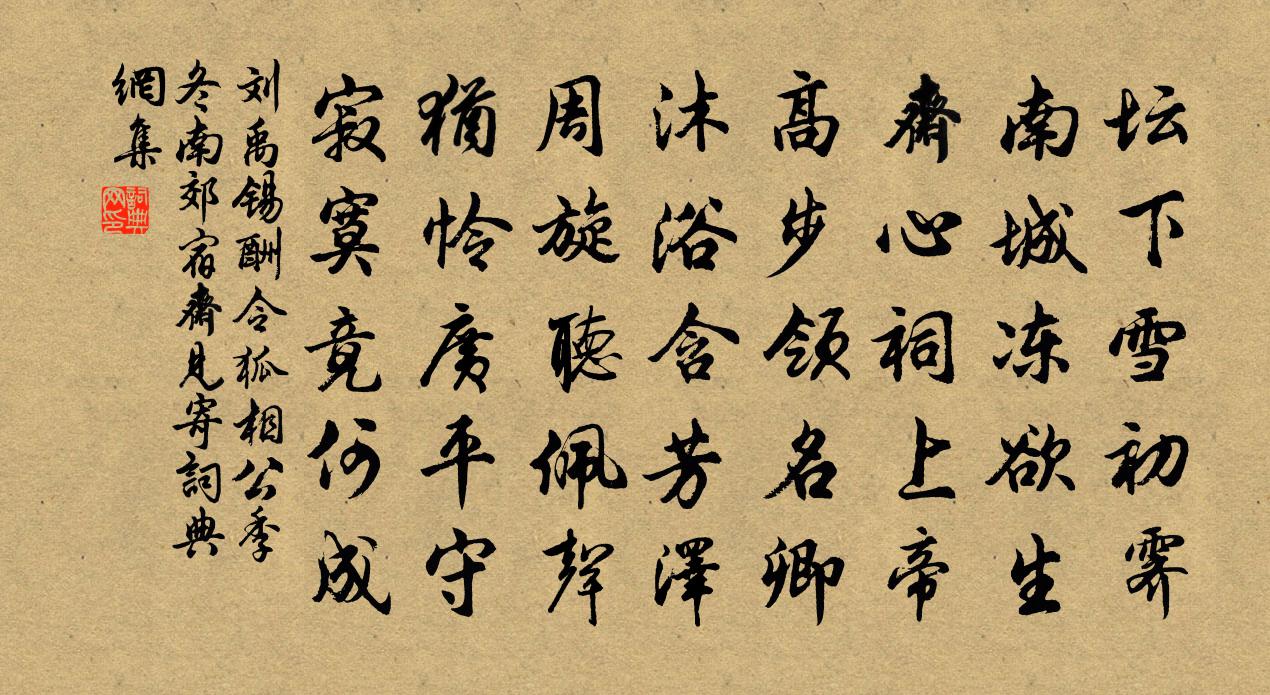 坛下雪初霁
南城冻欲生
齋心祠上帝
髙步领名卿
沐浴含芳澤
周旋聽佩聲
猶怜廣平守
寂寞竟何成
刘禹锡酬令狐相公季
冬南郊宿齋見寄詞典
網集
詞典
网印